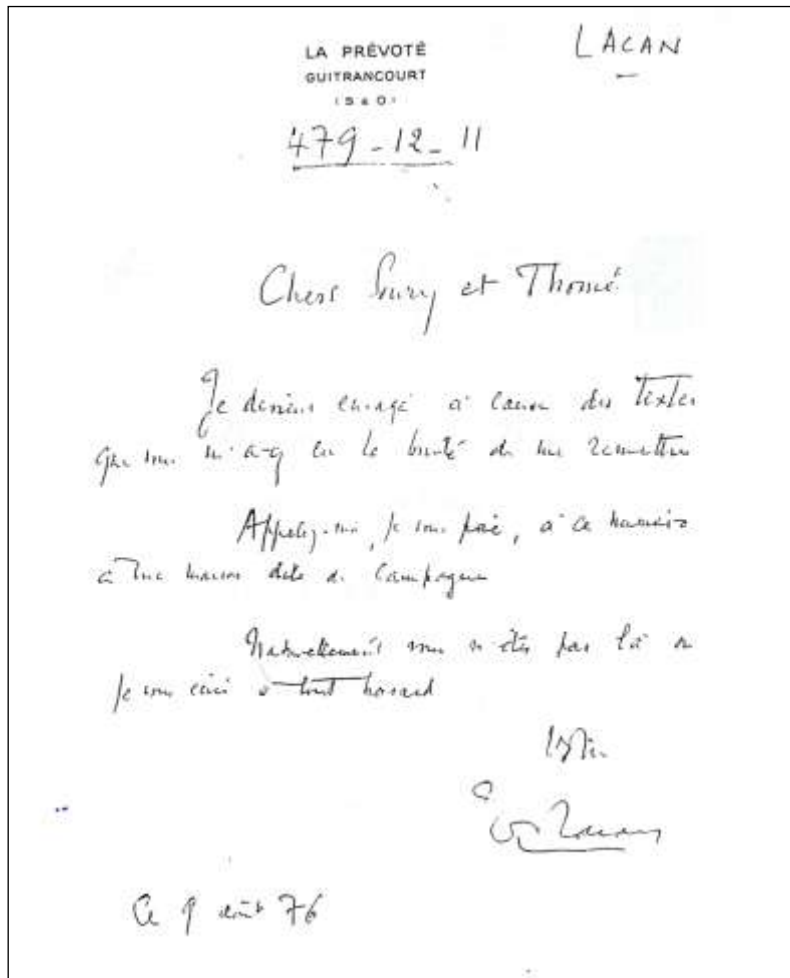 LACAN
LA PRÉVOTÉ
GUITRANCOURT
(S & O)
479-12-11
Chers Soury et Thomé
Je deviens enragé à cause des textes
que vous m'avez eu la bonté de me remettre
Appelez-moi, je vous prie, à ce numéro
à ma maison dite de campagne
Naturellement vous n'êtes pas là
je vous écris à tout hasard
Votre
Lacan
Ce 9 août 76